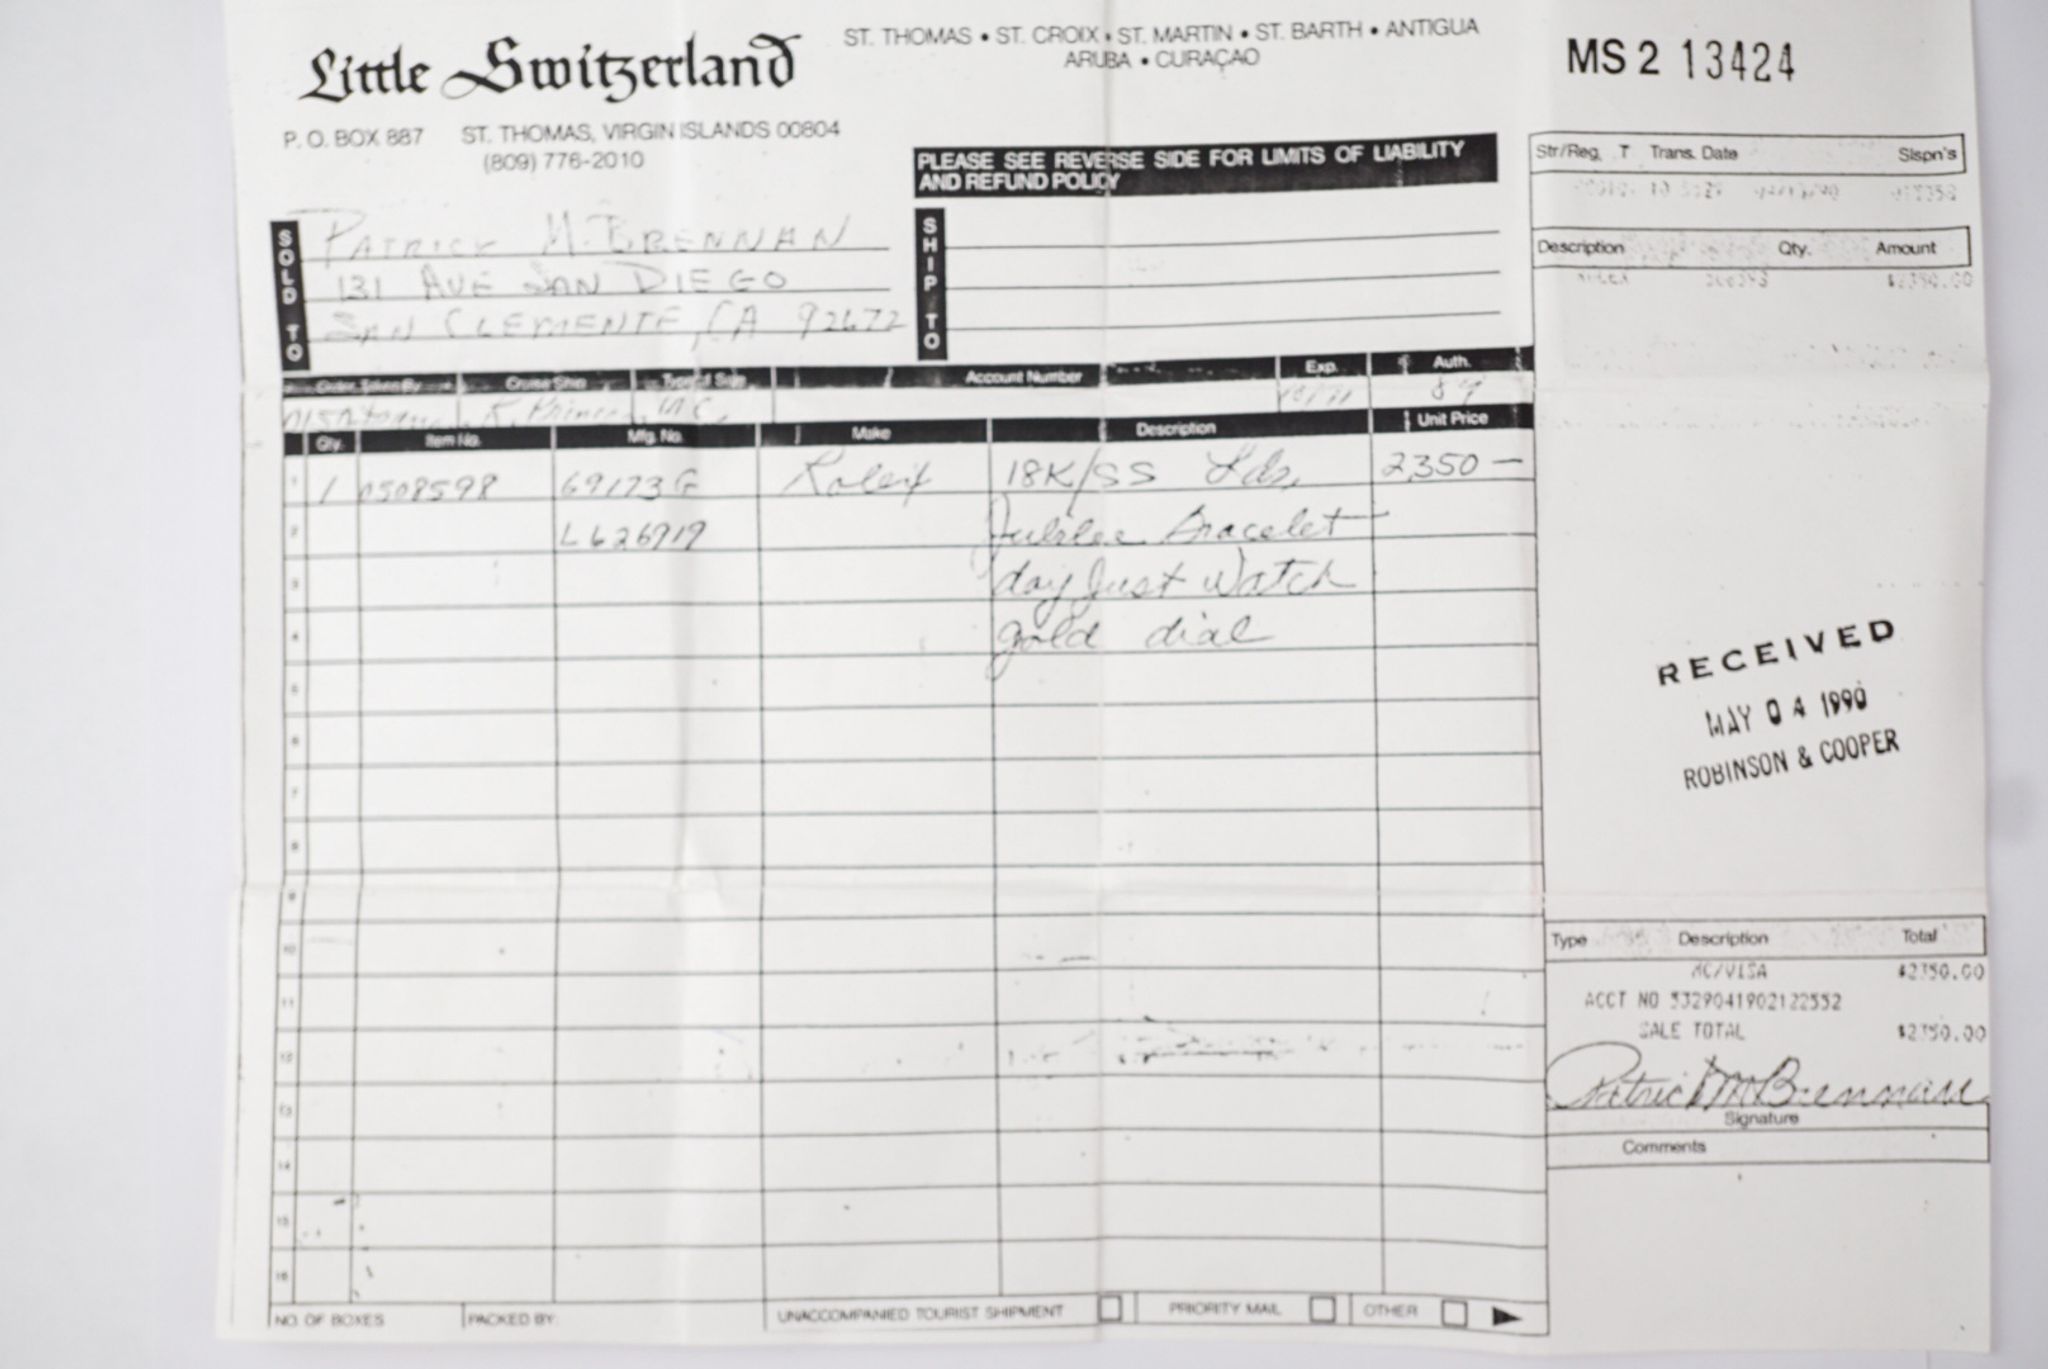 Little Switzerland
ST. THOMAS • ST. CROIX • ST. MARTIN • ST. BARTH • ANTIGUA
ARUBA • CURAÇAO
MS 2 13424
P. O. BOX 887 ST. THOMAS, VIRGIN ISLANDS 00804
(809) 776-2010
PLEASE SEE REVERSE SIDE FOR LIMITS OF LIABILITY
AND REFUND POLICY
Str/Reg. T Trans. Date Slspn's
SOLD TO
PATRICK M. BRENNAN
131 AVE SAN DIEGO
SAN CLEMENTE, CA 92672
SHIP TO
Description Qty. Amount
$2350.00
Order Taken By Cruise Ship Type of Sale Account Number Exp. Auth.
Qty. Item No. Mfg. No. Make Description Unit Price
1 1 0508598 69173G Rolex 18K/SS Lds. 2,350 —
2 L626919 Jubilee Bracelet
3 day Just Watch
4 gold dial
5
6
7
8
9
10
11
12
13
14
15
16
RECEIVED
MAY 04 1990
ROBINSON & COOPER
Type Description Total
MC/VISA $2350.00
ACCT NO 5329041902122552
SALE TOTAL $2350.00
Patrick M Brennan
Signature
Comments
NO. OF BOXES PACKED BY: UNACCOMPANIED TOURIST SHIPMENT PRIORITY MAIL OTHER